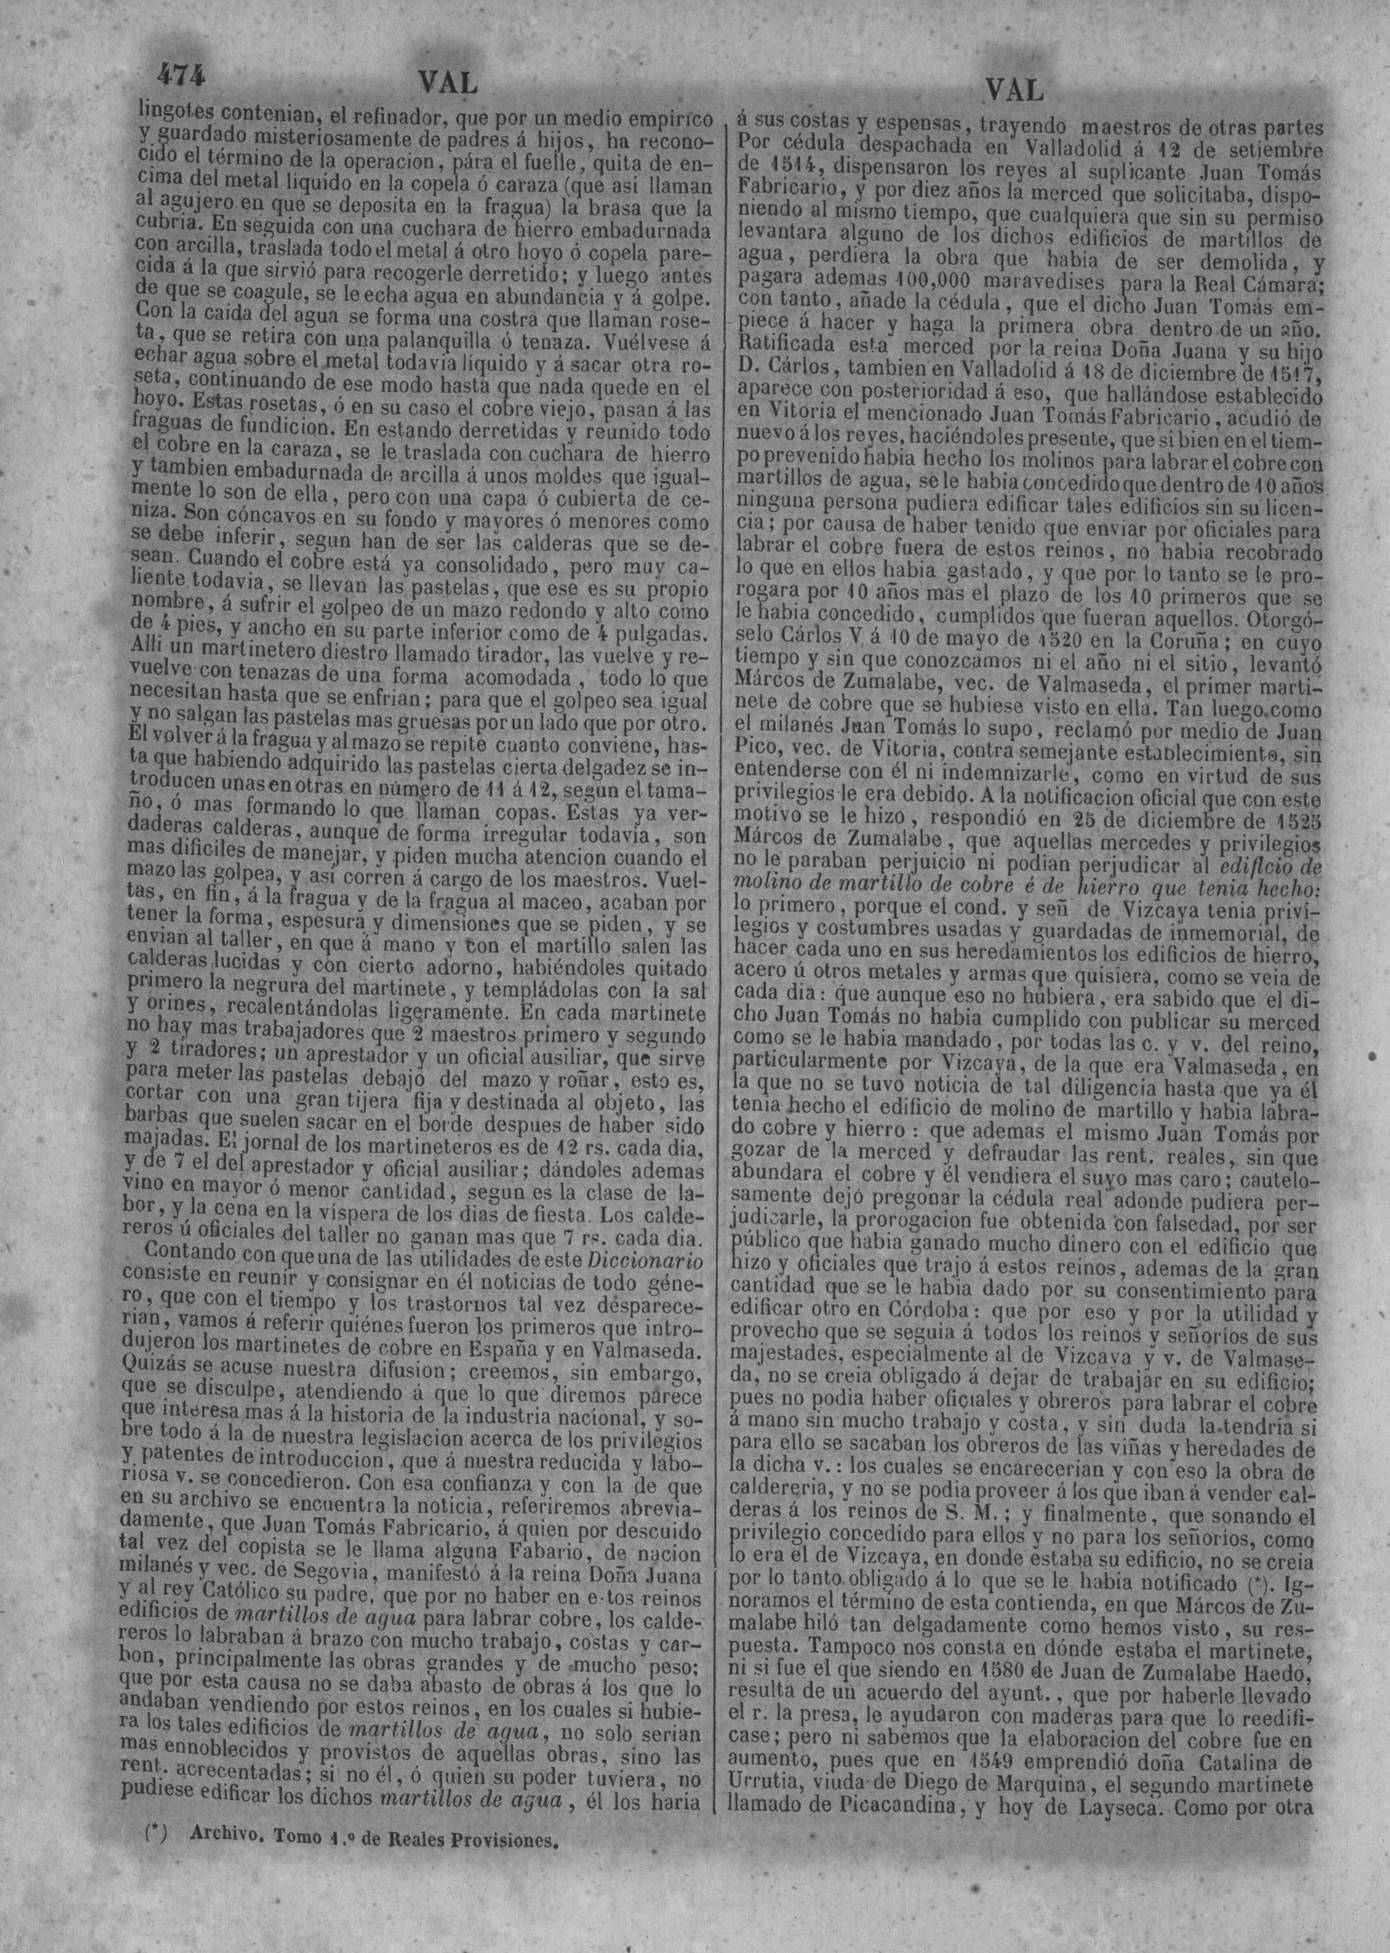 474
VAL
VAL
lingotes contenian, el refinador, que por un medio empírico
y guardado misteriosamente de padres á hijos, ha recono-
cido el término de la operacion, pára el fuelle, quita de en-
cima del metal liquido en la copela ó caraza (que asi llaman
al agujero en que se deposita en la fragua) la brasa que la
cubria. En seguida con una cuchara de hierro embadurnada
con arcilla, traslada todo el metal á otro hoyo ó copela pare-
cida á la que sirvió para recogerle derretido; y luego antes
de que se coagule, se le echa agua en abundancia y á golpe.
Con la caida del agua se forma una costra que llaman rose-
ta, que se retira con una palanquilla ó tenaza. Vuélvese á
echar agua sobre el metal todavía líquido y á sacar otra ro-
seta, continuando de ese modo hasta que nada quede en el
hoyo. Estas rosetas, ó en su caso el cobre viejo, pasan á las
fraguas de fundicion. En estando derretidas y reunido todo
el cobre en la caraza, se le traslada con cuchara de hierro
y tambien embadurnada de arcilla á unos moldes que igual-
mente lo son de ella, pero con una capa ó cubierta de ce-
niza. Son cóncavos en su fondo y mayores ó menores como
se debe inferir, segun han de ser las calderas que se de-
sean. Cuando el cobre está ya consolidado, pero muy ca-
liente todavia, se llevan las pastelas, que ese es su propio
nombre, á sufrir el golpeo de un mazo redondo y alto como
de 4 pies, y ancho en su parte inferior como de 4 pulgadas.
Alli un martinetero diestro llamado tirador, las vuelve y re-
vuelve con tenazas de una forma acomodada, todo lo que
necesitan hasta que se enfrian; para que el golpeo sea igual
y no salgan las pastelas mas gruesas por un lado que por otro.
El volver á la fragua y al mazo se repite cuanto conviene, has-
ta que habiendo adquirido las pastelas cierta delgadez se in-
troducen unas en otras en número de 11 á 12, segun el tama-
ño, ó mas formando lo que llaman copas. Estas ya ver-
daderas calderas, aunque de forma irregular todavia, son
mas dificiles de manejar, y piden mucha atencion cuando el
mazo las golpea, y asi corren á cargo de los maestros. Vuel-
tas, en fin, á la fragua y de la fragua al maceo, acaban por
tener la forma, espesura y dimensiones que se piden, y se
envian al taller, en que á mano y con el martillo salen las
calderas lucidas y con cierto adorno, habiéndoles quitado
primero la negrura del martinete, y templádolas con la sal
y orines, recalentándolas ligeramente. En cada martinete
no hay mas trabajadores que 2 maestros primero y segundo
y 2 tiradores; un aprestador y un oficial ausiliar, que sirve
para meter las pastelas debajo del mazo y roñar, esto es,
cortar con una gran tijera fija y destinada al objeto, las
barbas que suelen sacar en el borde despues de haber sido
majadas. El jornal de los martineteros es de 12 rs. cada dia,
y de 7 el del aprestador y oficial ausiliar; dándoles ademas
vino en mayor ó menor cantidad, segun es la clase de la-
bor, y la cena en la víspera de los dias de fiesta. Los calde-
reros ú oficiales del taller no ganan mas que 7 rs. cada dia.
Contando con que una de las utilidades de este Diccionario
consiste en reunir y consignar en él noticias de todo géne-
ro, que con el tiempo y los trastornos tal vez desparece-
rian, vamos á referir quiénes fueron los primeros que intro-
dujeron los martinetes de cobre en España y en Valmaseda.
Quizás se acuse nuestra difusion; creemos, sin embargo,
que se disculpe, atendiendo á que lo que diremos parece
que interesa mas á la historia de la industria nacional, y so-
bre todo á la de nuestra legislacion acerca de los privilegios
y patentes de introduccion, que á nuestra reducida y labo-
riosa v. se concedieron. Con esa confianza y con la de que
en su archivo se encuentra la noticia, referiremos abrevia-
damente, que Juan Tomás Fabricario, á quien por descuido
tal vez del copista se le llama alguna Fabario, de nacion
milanés y vec. de Segovia, manifestó á la reina Doña Juana
y al rey Católico su padre, que por no haber en e tos reinos
edificios de martillos de agua para labrar cobre, los calde-
reros lo labraban á brazo con mucho trabajo, costas y car-
bon, principalmente las obras grandes y de mucho peso;
que por esta causa no se daba abasto de obras á los que lo
andaban vendiendo por estos reinos, en los cuales si hubie-
ra los tales edificios de martillos de agua, no solo serian
mas ennoblecidos y provistos de aquellas obras, sino las
rent. acrecentadas; si no él, ó quien su poder tuviera, no
pudiese edificar los dichos martillos de agua, él los haria
á sus costas y espensas, trayendo maestros de otras partes
Por cédula despachada en Valladolid á 12 de setiembre
de 1514, dispensaron los reyes al suplicante Juan Tomás
Fabricario, y por diez años la merced que solicitaba, dispo-
niendo al mismo tiempo, que cualquiera que sin su permiso
levantara alguno de los dichos edificios de martillos de
agua, perdiera la obra que habia de ser demolida, y
pagara ademas 100,000 maravedises para la Real Cámara;
con tanto, añade la cédula, que el dicho Juan Tomás em-
piece á hacer y haga la primera obra dentro de un año.
Ratificada esta merced por la reina Doña Juana y su hijo
D. Cárlos, tambien en Valladolid á 18 de diciembre de 1517,
aparece con posterioridad á eso, que hallándose establecido
en Vitoria el mencionado Juan Tomás Fabricario, acudió de
nuevo á los reyes, haciéndoles presente, que si bien en el tiem-
po prevenido habia hecho los molinos para labrar el cobre con
martillos de agua, se le habia concedido que dentro de 10 años
ninguna persona pudiera edificar tales edificios sin su licen-
cia; por causa de haber tenido que enviar por oficiales para
labrar el cobre fuera de estos reinos, no habia recobrado
lo que en ellos habia gastado, y que por lo tanto se le pro-
rogara por 10 años mas el plazo de los 10 primeros que se
le habia concedido, cumplidos que fueran aquellos. Otorgó-
selo Cárlos V á 10 de mayo de 1520 en la Coruña; en cuyo
tiempo y sin que conozcamos ni el año ni el sitio, levantó
Márcos de Zumalabe, vec. de Valmaseda, el primer marti-
nete de cobre que se hubiese visto en ella. Tan luego como
el milanés Juan Tomás lo supo, reclamó por medio de Juan
Pico, vec. de Vitoria, contra semejante establecimiento, sin
entenderse con él ni indemnizarle, como en virtud de sus
privilegios le era debido. A la notificacion oficial que con este
motivo se le hizo, respondió en 25 de diciembre de 1525
Márcos de Zumalabe, que aquellas mercedes y privilegios
no le paraban perjuicio ni podian perjudicar al edificio de
molino de martillo de cobre é de hierro que tenia hecho:
lo primero, porque el cond. y señ de Vizcaya tenia privi-
legios y costumbres usadas y guardadas de inmemorial, de
hacer cada uno en sus heredamientos los edificios de hierro,
acero ú otros metales y armas que quisiera, como se veia de
cada dia: que aunque eso no hubiera, era sabido que el di-
cho Juan Tomás no habia cumplido con publicar su merced
como se le habia mandado, por todas las c. y v. del reino,
particularmente por Vizcaya, de la que era Valmaseda, en
la que no se tuvo noticia de tal diligencia hasta que ya él
tenia hecho el edificio de molino de martillo y habia labra-
do cobre y hierro: que ademas el mismo Juan Tomás por
gozar de la merced y defraudar las rent. reales, sin que
abundara el cobre y él vendiera el suyo mas caro; cautelo-
samente dejó pregonar la cédula real adonde pudiera per-
judicarle, la prorogacion fue obtenida con falsedad, por ser
público que habia ganado mucho dinero con el edificio que
hizo y oficiales que trajo á estos reinos, ademas de la gran
cantidad que se le habia dado por su consentimiento para
edificar otro en Córdoba: que por eso y por la utilidad y
provecho que se seguia á todos los reinos y señoríos de sus
majestades, especialmente al de Vizcaya y v. de Valmase-
da, no se creia obligado á dejar de trabajar en su edificio;
pues no podia haber oficiales y obreros para labrar el cobre
á mano sin mucho trabajo y costa, y sin duda la tendria si
para ello se sacaban los obreros de las viñas y heredades de
la dicha v.: los cuales se encarecerian y con eso la obra de
caldereria, y no se podia proveer á los que iban á vender cal-
deras á los reinos de S. M.; y finalmente, que sonando el
privilegio concedido para ellos y no para los señoríos, como
lo era el de Vizcaya, en donde estaba su edificio, no se creia
por lo tanto obligado á lo que se le habia notificado (*). Ig-
noramos el término de esta contienda, en que Márcos de Zu-
malabe hiló tan delgadamente como hemos visto, su res-
puesta. Tampoco nos consta en dónde estaba el martinete,
ni si fue el que siendo en 1580 de Juan de Zumalabe Haedo,
resulta de un acuerdo del ayunt., que por haberle llevado
el r. la presa, le ayudaron con maderas para que lo reedifi-
case; pero ni sabemos que la elaboracion del cobre fue en
aumento, pues que en 1549 emprendió doña Catalina de
Urrutia, viuda de Diego de Marquina, el segundo martinete
llamado de Picacandina, y hoy de Layseca. Como por otra
(*) Archivo. Tomo 1.º de Reales Provisiones.